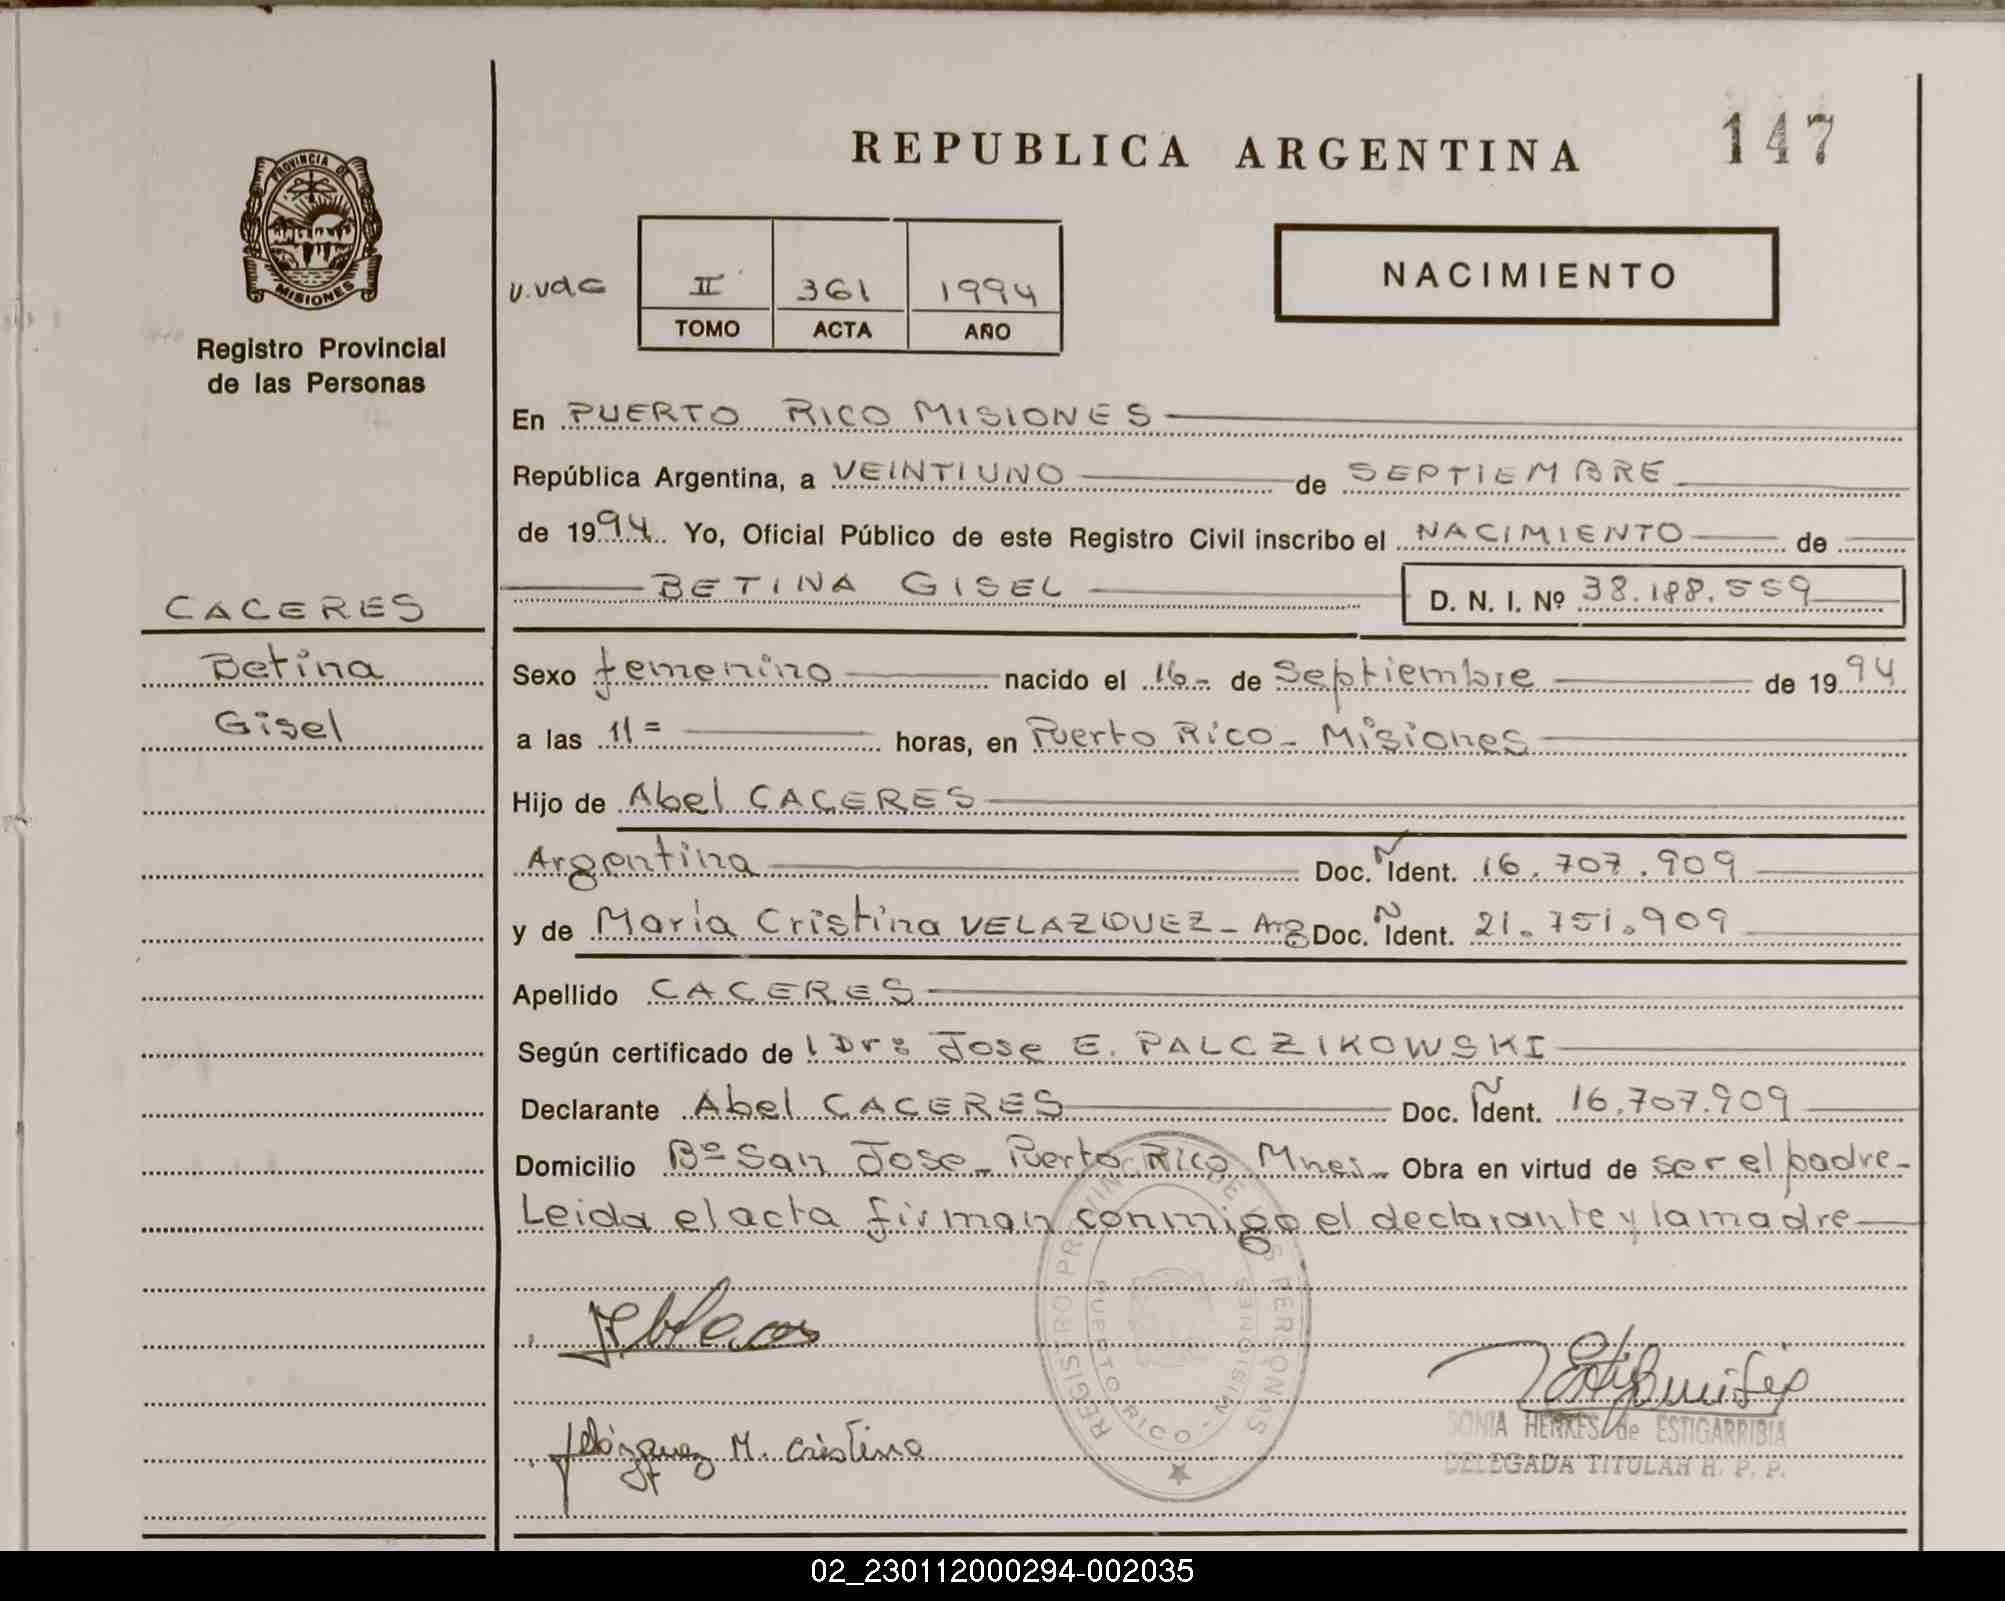 REPUBLICA ARGENTINA
147
PROVINCIA DE
MISIONES
Registro Provincial
de las Personas
II 361 1994
TOMO ACTA AÑO
NACIMIENTO
En PUERTO RICO MISIONES
República Argentina, a VEINTIUNO de SEPTIEMBRE
de 1994. Yo, Oficial Público de este Registro Civil inscribo el NACIMIENTO de
BETINA GISEL D. N. I. Nº 38.188.559
CACERES
Betina
Gisel
Sexo femenino nacido el 16- de Septiembre de 1994
a las 11= horas, en Puerto Rico - Misiones
Hijo de Abel CACERES
Argentina Doc. Ñ Ident. 16.707.909
y de María Cristina VELAZQUEZ - Arg Doc. Ñ Ident. 21.751.909
Apellido CACERES
Según certificado de l Dr: Jose E. PALCZIKOWSKI
Declarante Abel CACERES Doc. Ñ Ident. 16.707.909
Domicilio Bº San Jose - Puerto Rico Mnes - Obra en virtud de ser el padre -
Leida el acta firman conmigo el declarante y la madre
REGISTRO PROVINCIAL DE LAS PERSONAS
PUERTO RICO - MISIONES
Velázquez M. Cristina
SONIA HENKES de ESTIGARRIBIA
DELEGADA TITULAR R. P. P.
02_230112000294-002035